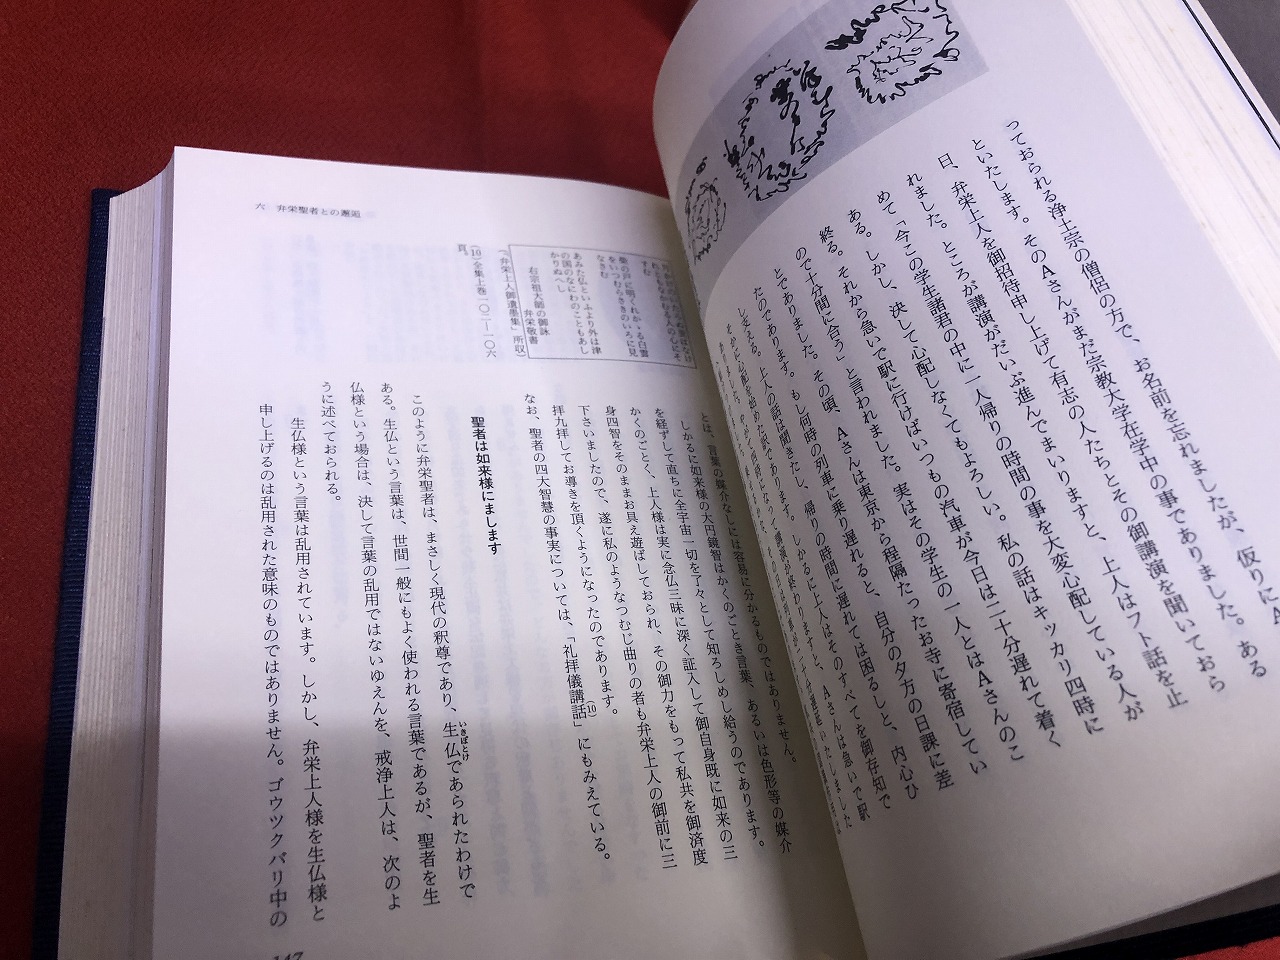 っておられる浄土宗の僧侶の方で、お名前を忘れましたが、仮りにA
といたします。そのAさんがまだ宗教大学在学中の事でありました。ある
日、弁栄上人を御招待申し上げて有志の人たちとその御講演を聞いておら
れました。ところが講演がだいぶ進んでまいりますと、上人はフト話を止
めて「今この学生諸君の中に一人帰りの時間の事を大変心配している人が
ある。しかし、決して心配しなくてもよろしい。私の話はキッカリ四時に
終る。それから急いで駅に行けばいつもの汽車が今日は二十分遅れて着く
ので十分間に合う」と言われました。実はその学生の一人とはAさんのこ
とでありました。その頃、Aさんは東京から程隔たったお寺に寄宿してい
たのであります。もし何時の列車に乗り遅れると、自分の夕方の日課に差
し支える。上人の話は聞きたし、帰りの時間に遅れては困るしと、内心ひ
そかに心配を始めた訳であります。しかるに上人はそのすべてを御存知で
とは、言葉の媒介なしには容易に分かるものではありません。
しかるに如来様の大円鏡智はかくのごとき言葉、あるいは色形等の媒介
を経ずして直ちに全宇宙一切を了々として知ろしめし給うのであります。
かくのごとく、上人様は実に念仏三昧に深く証入して御自身既に如来の三
身四智をそのままお具え遊ばしておられ、その御力をもって私共を御済度
下さいましたので、遂に私のようなつむじ曲りの者も弁栄上人の御前に三
拝九拝してお導きを頂くようになったのであります。
なお、聖者の四大智慧の事実については、「礼拝儀講話」(10)にもみえている。
聖者は如来様にまします
このように弁栄聖者は、まさしく現代の釈尊であり、生仏(いきぼとけ)であられたわけで
ある。生仏という言葉は、世間一般にもよく使われる言葉であるが、聖者を生
仏様という場合は、決して言葉の乱用ではないゆえんを、戒浄上人は、次のよ
うに述べておられる。
生仏様という言葉は乱用されています。しかし、弁栄上人様を生仏様と
申し上げるのは乱用された意味のものではありません。ゴウツクバリ中の
柴の戸に明くれかゝる白雲
をいつむらさきのいろに見
なさむ
あみた仏といふより外は津
の国のなにわのこともあし
かりぬへし
右宗祖大師の御詠
弁栄敬書
(『弁栄上人御遺墨集』所収)
(10)全集上巻一〇二―一〇六
頁。
六 弁栄聖者との邂逅
147